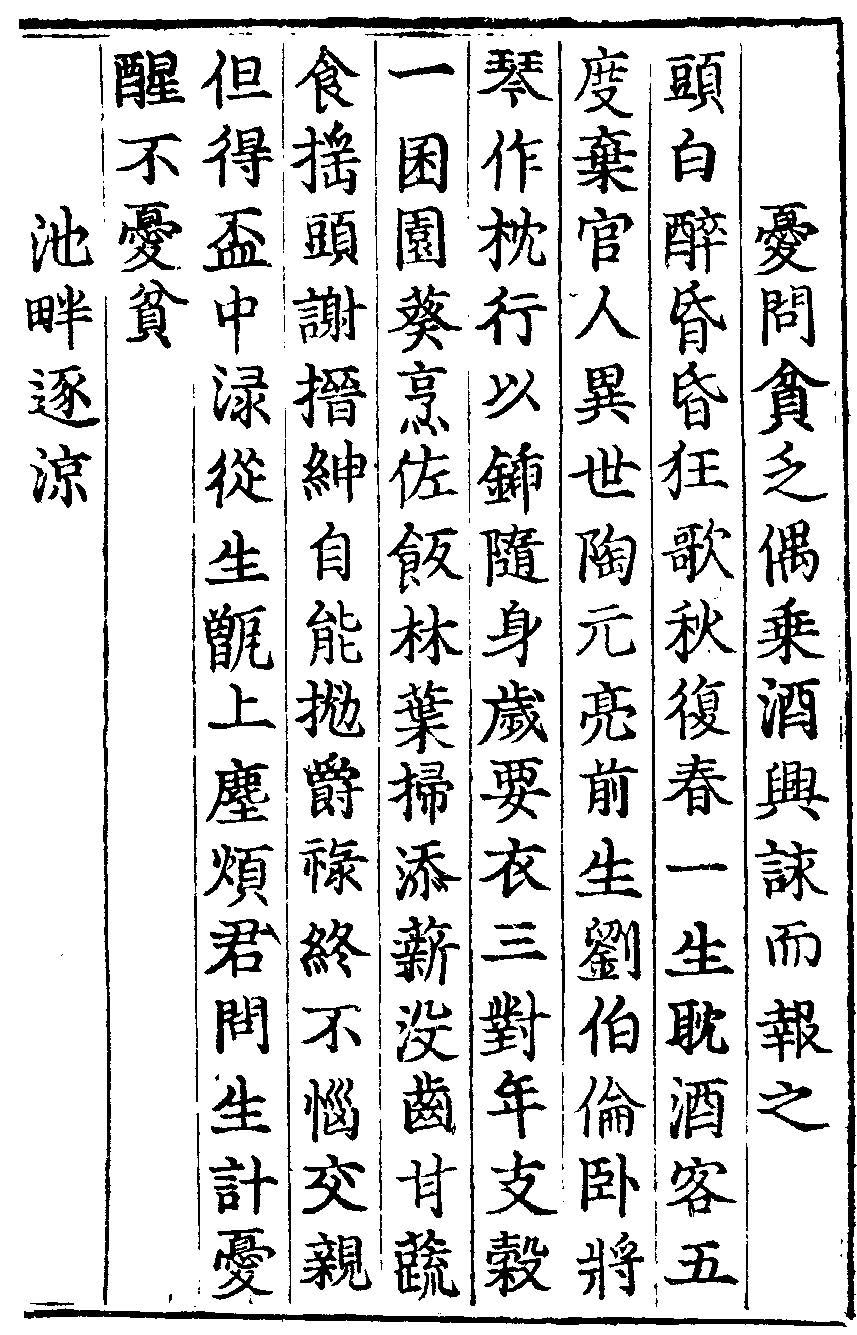 憂問貧乏偶乗酒興詠而報之
頭白醉昏昏狂歌秋復春一生耽酒客五
度棄官人異世陶元亮前生劉伯倫卧將
琴作枕行以鍤隨身歲要衣三對年支穀
一囷園葵烹佐飯林葉掃添薪没齒甘蔬
食揺頭謝搢紳自能抛爵祿終不惱交親
但得盃中渌從生甑上塵煩君問生計憂
醒不憂貧
池畔逐涼